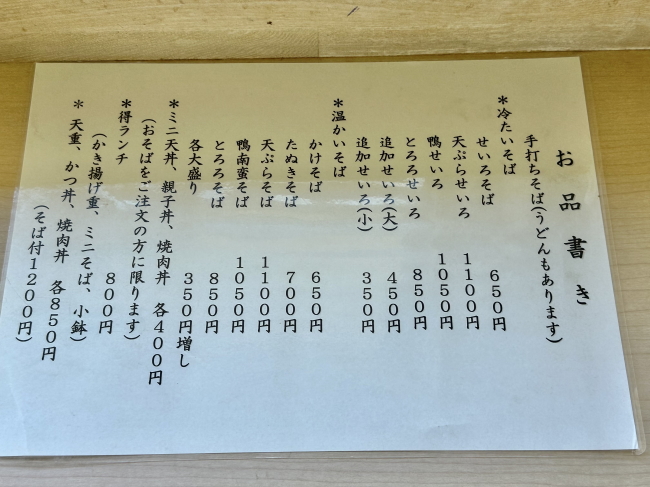 お品書き
手打ちそば(うどんもあります)
＊冷たいそば
せいろそば　６５０円
天ぷらせいろ　１１００円
鴨せいろ　１０５０円
とろろせいろ　８５０円
追加せいろ(大)　４５０円
追加せいろ(小)　３５０円
＊温かいそば
かけそば　６５０円
たぬきそば　７００円
天ぷらそば　１１００円
鴨南蛮そば　１０５０円
とろろそば　８５０円
各大盛り　３５０円増し
＊ミニ天丼、親子丼、焼肉丼　各４００円
(おそばをご注文の方に限ります)
＊得ランチ　８００円
(かき揚げ重、ミニそば、小鉢)
＊　天重、かつ丼、焼肉丼　各８５０円
(そば付１２００円)